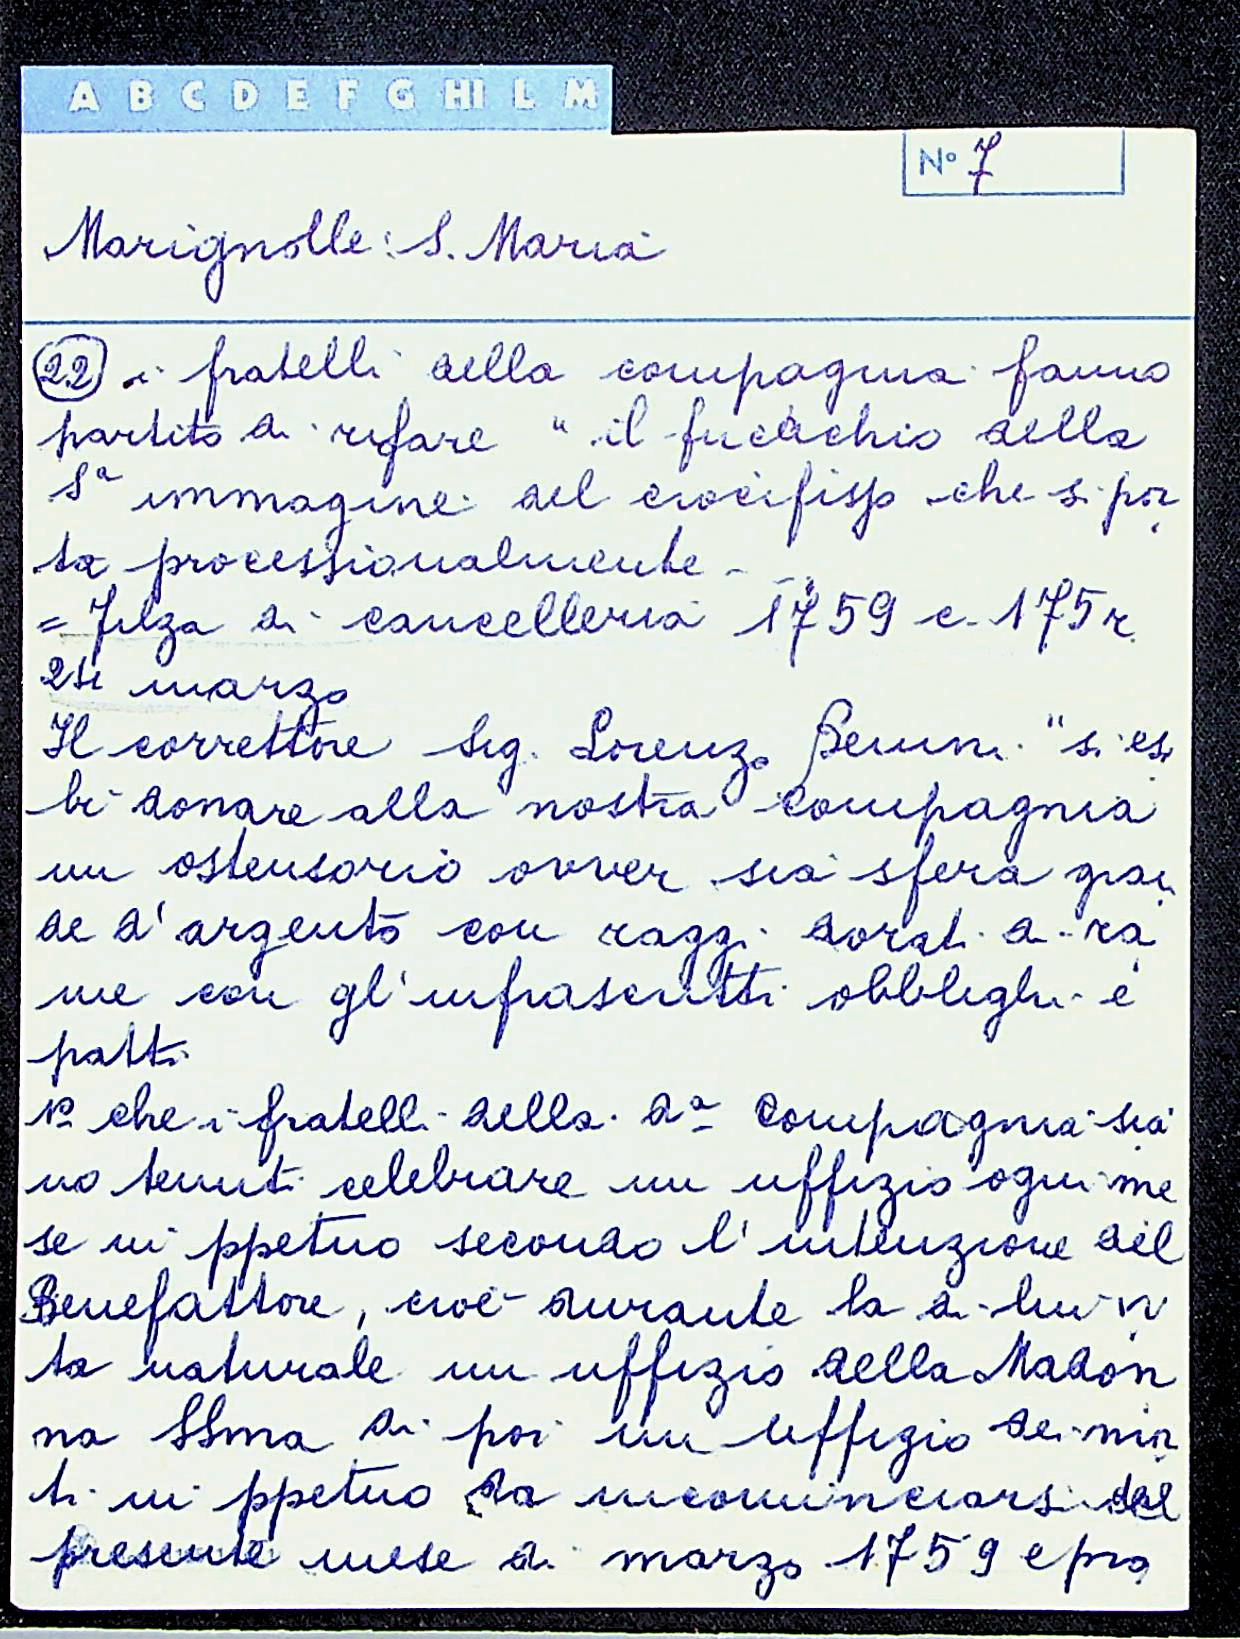 A B C D E F G HI L M
Nº 7
Marignolle: S. Maria
22 i fratelli della compagnia fanno
partito di rifare " il fucacchio della
Sª immagine del crocifisso che si por
ta processionalmente -
= Filza di cancelleria 1759 c. 175r
24 marzo
Il correttore Sig. Lorenzo Benini "si esi
bì donare alla nostra compagnia
un ostensorio ovver sia sfera gran
de d'argento con raggi dorati di ra
me con gl'infrascritti obblighi e
patti
1º che i fratelli della dª Compagnia sia
no tenuti celebrare un uffizio ogni me
se in ppetuo secondo l'intenzione del
Benefattore, cioè durante la di lui vi
ta naturale un uffizio della Madon
na SSma di poi un uffizio dei mor
ti in ppetuo da incominciarsi dal
presente mese di marzo 1759 e pro